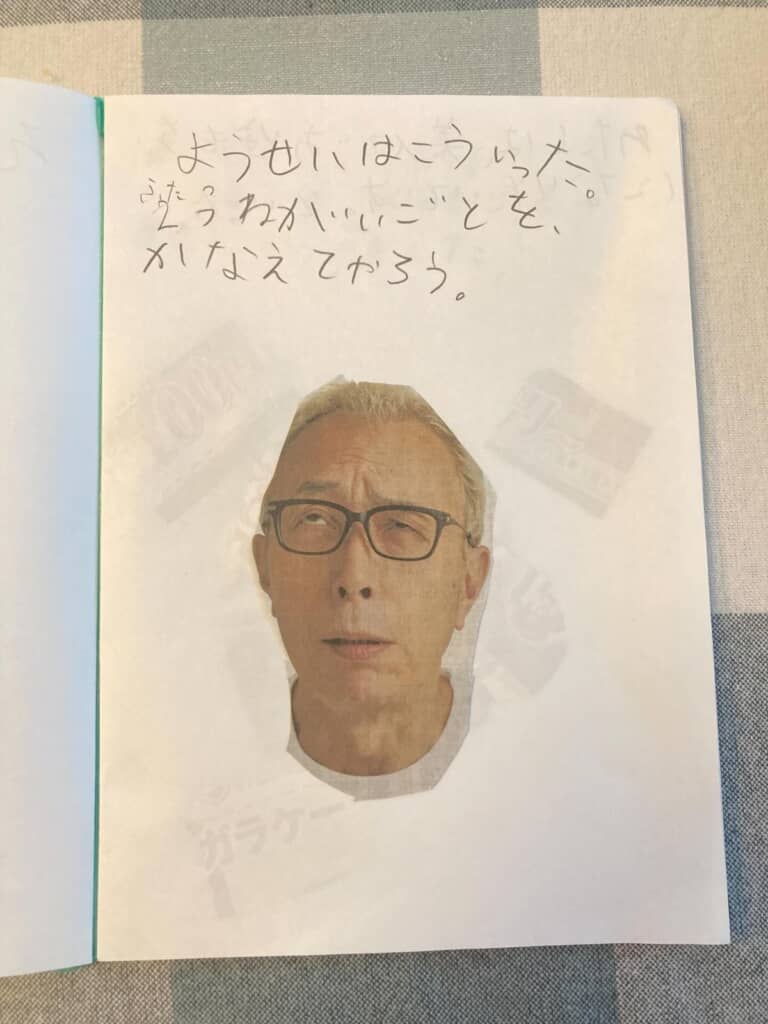 ようせいはこういった。
ふたつねがいごとを、
かなえてやろう。
ガラケー